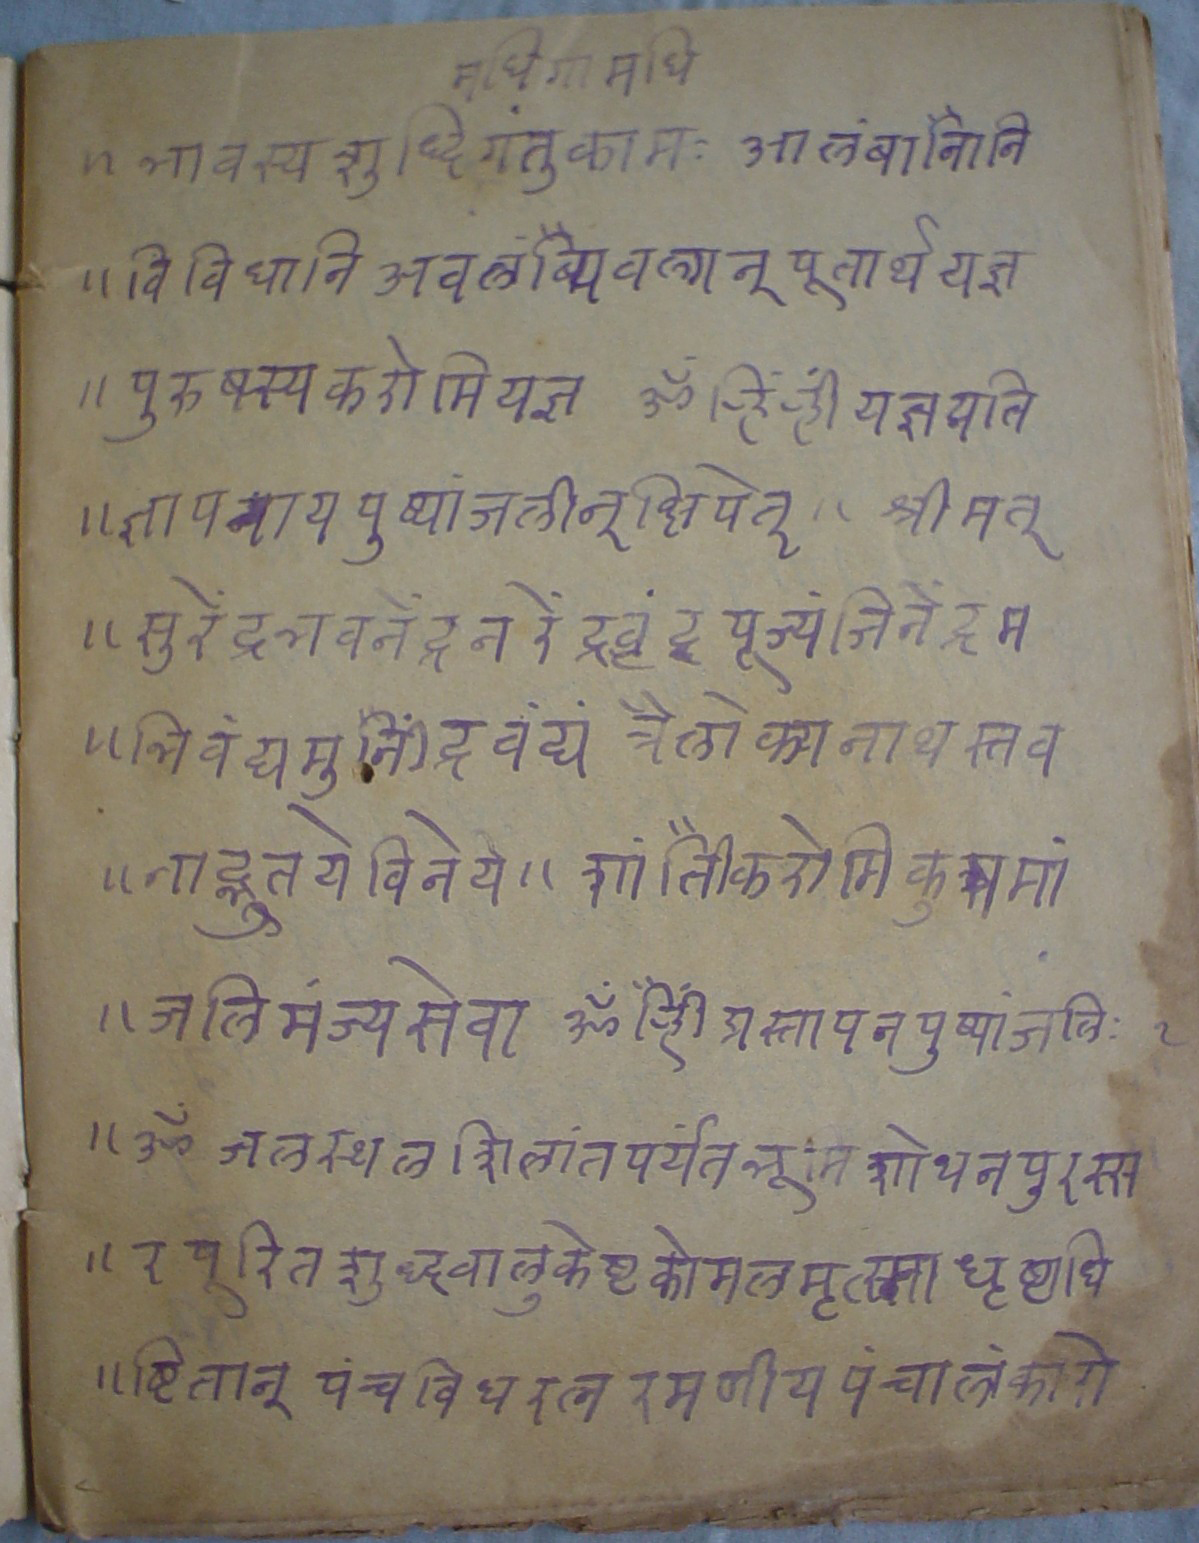 मधिगामधि
॥ भावस्य शुध्दिगंतुकामः आलंबानिानि
॥ विविधानि अवलंब्यिवल्गन् पूतार्थ यज्ञ
॥ पुरुषस्य करोमि यज्ञ ॐ ह्रिं ह्रीं यज्ञप्रति
॥ ज्ञापनाय पुष्पांजलीन् क्षिपेत् ॥ श्रीमत्
॥ सुरेंद्रभवनेंद्रनरेंद्रवृंद पूज्यं जिनेंद्रम
॥ भिवंद्यमुनिंद्रवंद्यं त्रैलोक्यनाथस्तव
॥ नाद्भुतये विनेये ॥ शांतिकरोमि कुशमां
॥ जलिमंज्यसेवा ॐ ह्रिं प्रस्तापनपुष्पांजलिः २
॥ ॐ जलस्थलशिलांतपर्यंतभूमिशोधनपुरस्स
॥ रपूरितशुध्दवालुकेष्टकोमलमृत्स्नाधृष्टाधि
॥ ष्टितान् पंचविधरत्नरमणीयपंचालंकारो